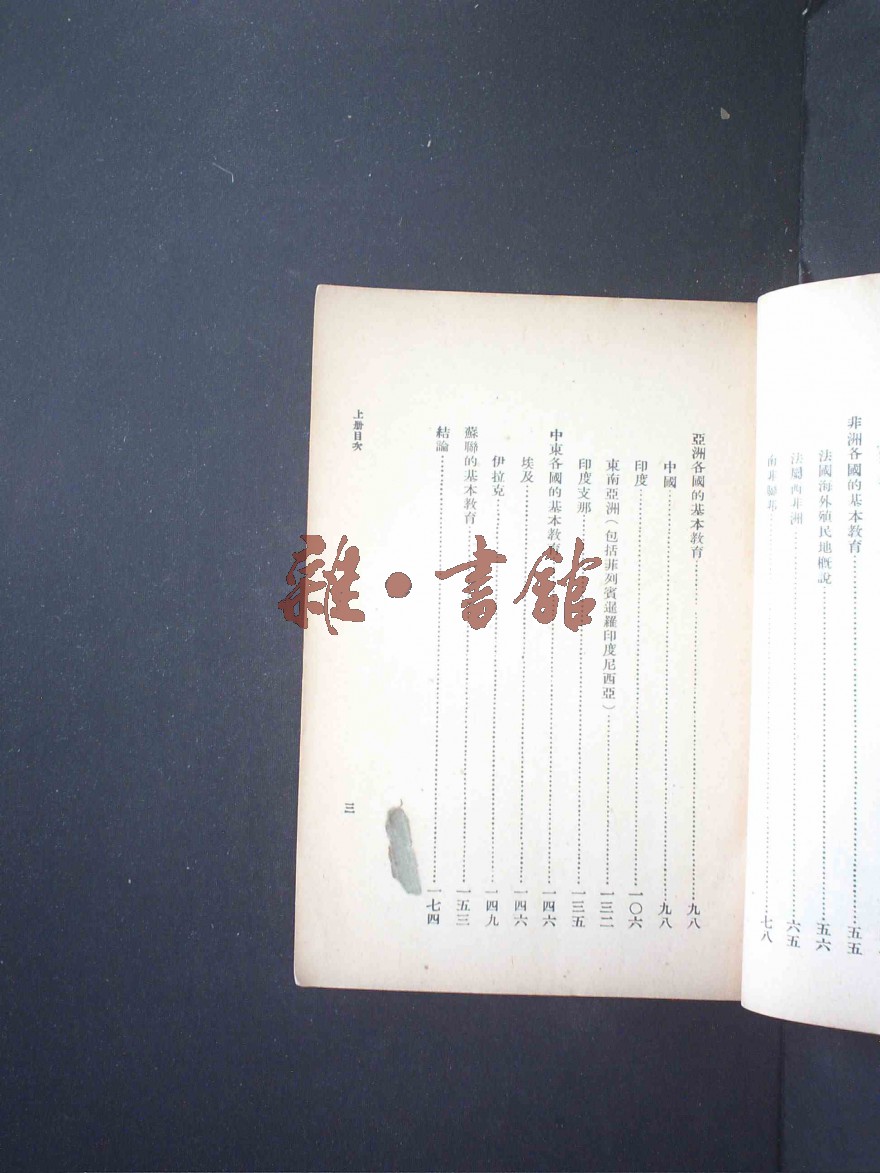 非洲各國的基本教育……五五
法國海外殖民地概說……五六
法屬西非洲……六五
南非聯邦……七八
亞洲各國的基本教育……九八
中國……九八
印度……一〇六
東南亞洲（包括菲列賓暹羅印度尼西亞）……一三二
印度支那……一三五
中東各國的基本教育……一四六
埃及……一四六
伊拉克……一四九
蘇聯的基本教育……一五三
結論……一七四
上册目次
三
雜·書館